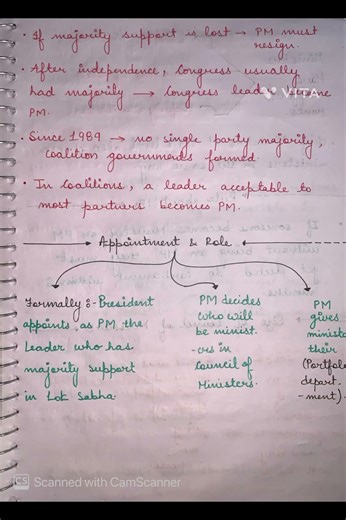 · If majority support is lost → PM must
resign.
· After independence, Congress usually
had majority → Congress leader
PM.
· Since 1989 → no single party majority,
coalition governments formed
· In Coalitions, a leader acceptable to
most partners becomes PM.
Appointment & Role
Formally :- President
appoints, as PM, the
Leader who has
majority support
in Lok Sabha.
PM decides
who will
be minist.
-ers in
Council of
Ministers.
PM
gives
minist
their
(Portfol
depart.
-ment).
CS Scanned with CamScanner